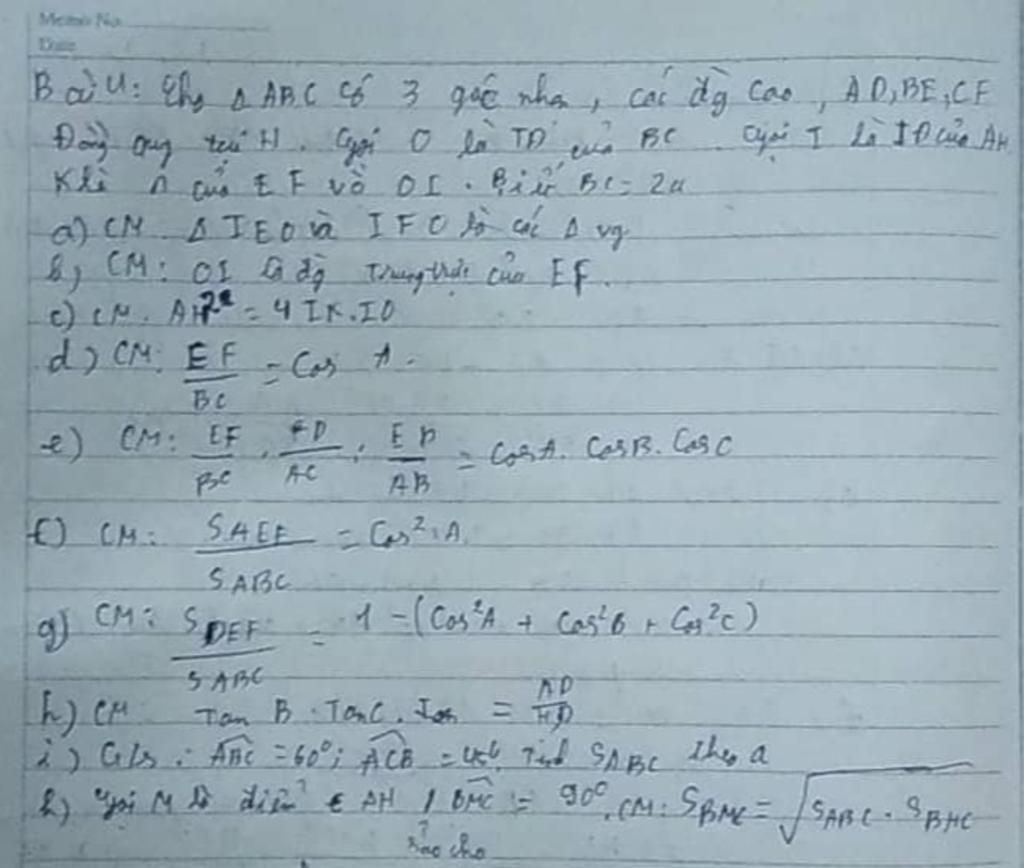 Memo No.
Date
Bài 4: Cho Δ ABC có 3 góc nhọn, các đg cao, AD, BE, CF
Đồng quy tại H. Gọi O là TĐ của BC. Gọi I là TĐ của AH
K là ∩ của EF và OI. Biết BC = 2a
a) CM Δ IEO và IFO là các Δ vg
b) CM: OI là đg trung trực của EF.
c) CM. AH² = 4 IK.IO
d) CM: EF/BC = Cos A.
e) CM: EF/BC . FD/AC . ED/AB = CosA. CosB. CosC
f) CM: SAEF/SABC = Cos² A.
g) CM: SDEF/SABC = 1 - (Cos²A + Cos²B + Cos²C)
h) CM Tan B . TanC. = AD/HD
i) G/s: ABC = 60°; ACB = 45°. Tính SABC theo a
k) Gọi M là điểm ∈ AH / BMC = 90°. CM: SBMC = √SABC . SBHC
sao cho